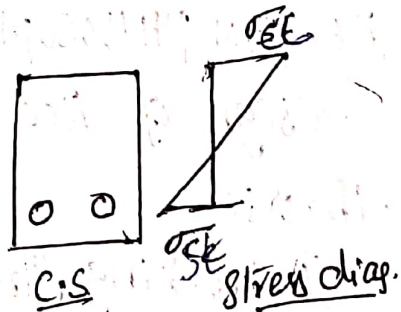 σst
σst
C.S
Stress diag.